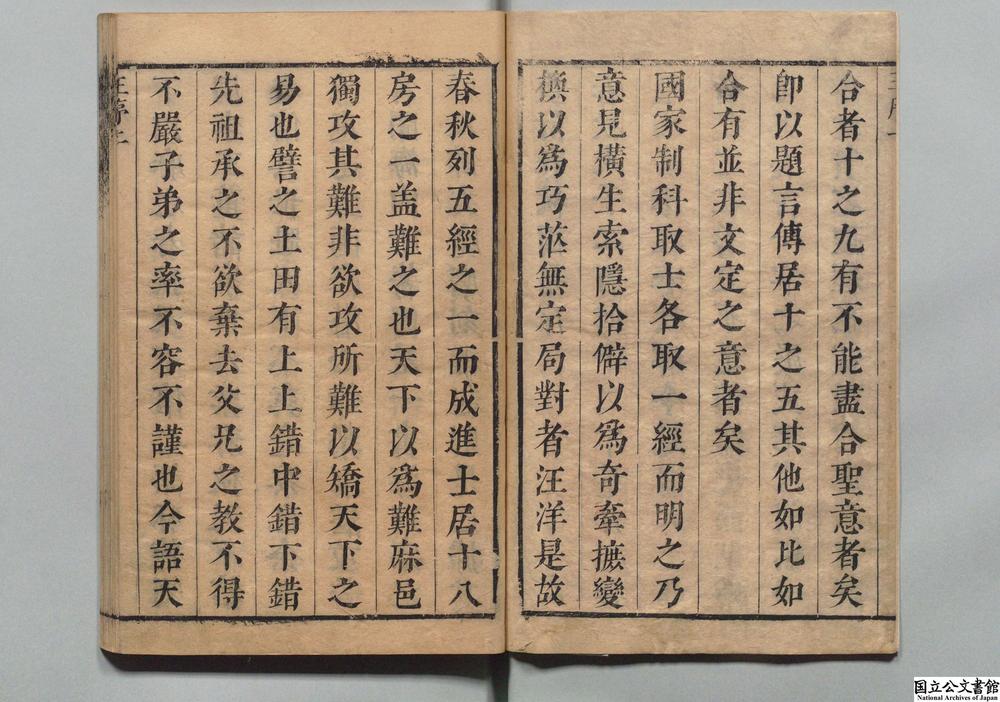 合者十之九有不能盡合聖意者矣
即以題言傳居十之五其他如比如
合有並非文定之意者矣
國家制科取士各取一經而明之乃
意見橫生索隱拾僻以為奇牽摭變
換以為巧茫無定局對者汪洋是故
春秋列五經之一而成進士居十八
房之一盖難之也天下以為難麻邑
獨攻其難非欲攻所難以矯天下之
易也譬之土田有上上錯中錯下錯
先祖承之不欲棄去父兄之教不得
不嚴子弟之率不容不謹也今語天
国立公文書館
National Archives of Japan